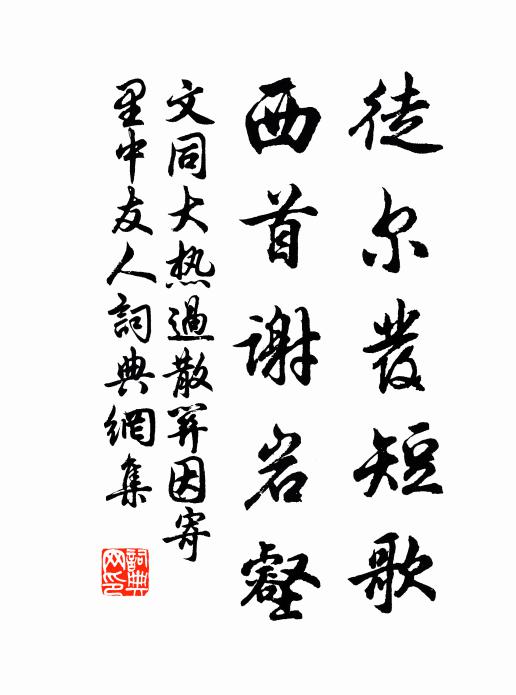 徒尔發短歌
西首谢岩壑
文同大热過散關因寄
里中友人詞典網集
詞典网印